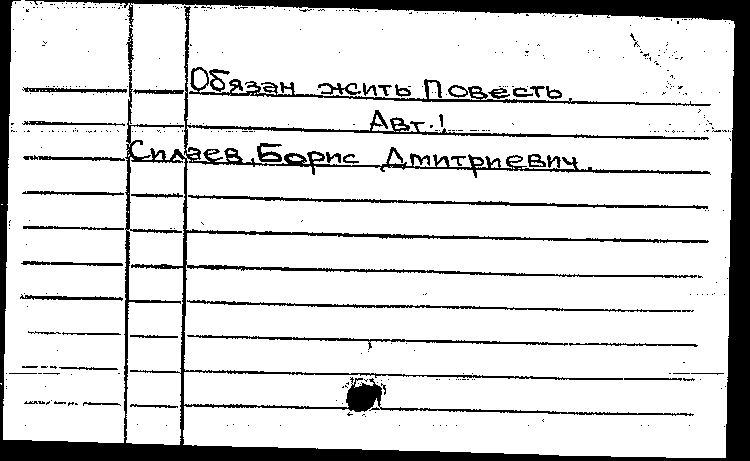 Обязан жить Повесть.
Авт.!
Силаев, Борис Дмитриевич.